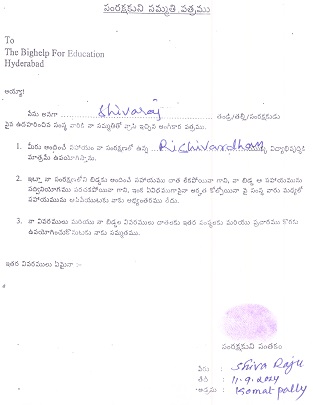 సంరక్షకుని సమ్మతి పత్రము
To
The Bighelp For Education
Hyderabad
అయ్యా!
నేను అనగా Shivaraj తండ్రి/తల్లి/సంరక్షకుడు
పైన ఉదహరించిన సంస్థ వారికి నా సమ్మతితో వ్రాసి ఇచ్చిన అంగీకార పత్రము.
1. మీరు అందించే సహాయం నా సంరక్షణలో ఉన్న Rishivardhan విద్యాభివృద్ధికి
మాత్రమే ఉపయోగిస్తాను.
2. ఇట్లా నా సంరక్షణలోని బిడ్డకు అందించే సహాయము దాత లేకపోయినా గాని, నా బిడ్డ ఆ సహాయమును
సద్వినియోగము పరచకపోయినా గాని, ఇంక ఏవిధముగానైనా అర్హత కోల్పోయినా పై సంస్థ వారు మధ్యలో
సహాయమును ఆపివేయుటకు నాకు అభ్యంతరము లేదు.
3. నా వివరములు మరియు నా బిడ్డల వివరములు దాతలకు ఇతర సంస్థలకు మరియు ప్రచారము కొరకు
ఉపయోగించుకొనుటకు నాకు సమ్మతము.
ఇతర వివరములు ఏమైనా :-
సంరక్షకుని సంతకం
పేరు : Shiva Raju
తేదీ : 11.9.2024
అడ్రసు : Komatpally